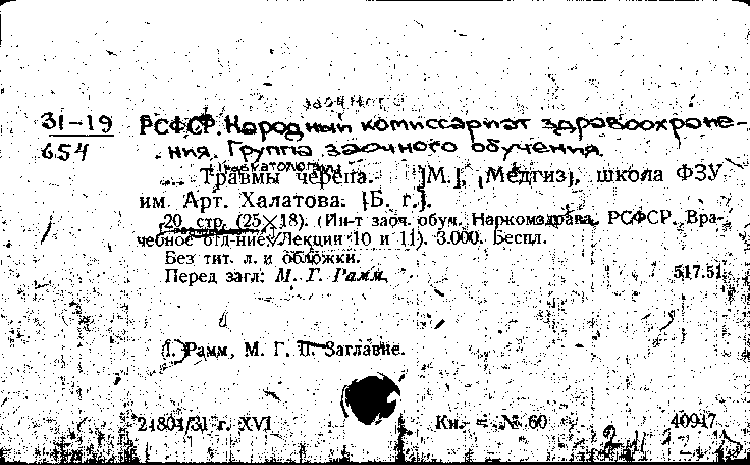 заочного
31-19
654
РСФСР. Народный комиссариат здравоохране-
ния. Группа заочного обучения.
... Травмы черепа. [М.], [Медгиз], школа ФЗУ
им. Арт. Халатова. [Б. г.].
20 стр. (25×18). (Ин-т заоч. обуч. Наркомздрава РСФСР. Вра-
чебное отд-ние. Лекции 10 и 11). 3.000. Беспл.
Без тит. л. и обложки.
Перед загл: М. Г. Рамм.
517.51
I. Рамм, М. Г. II. Заглавие.
21804/31 г. XVI
Кн. = № 60
40947